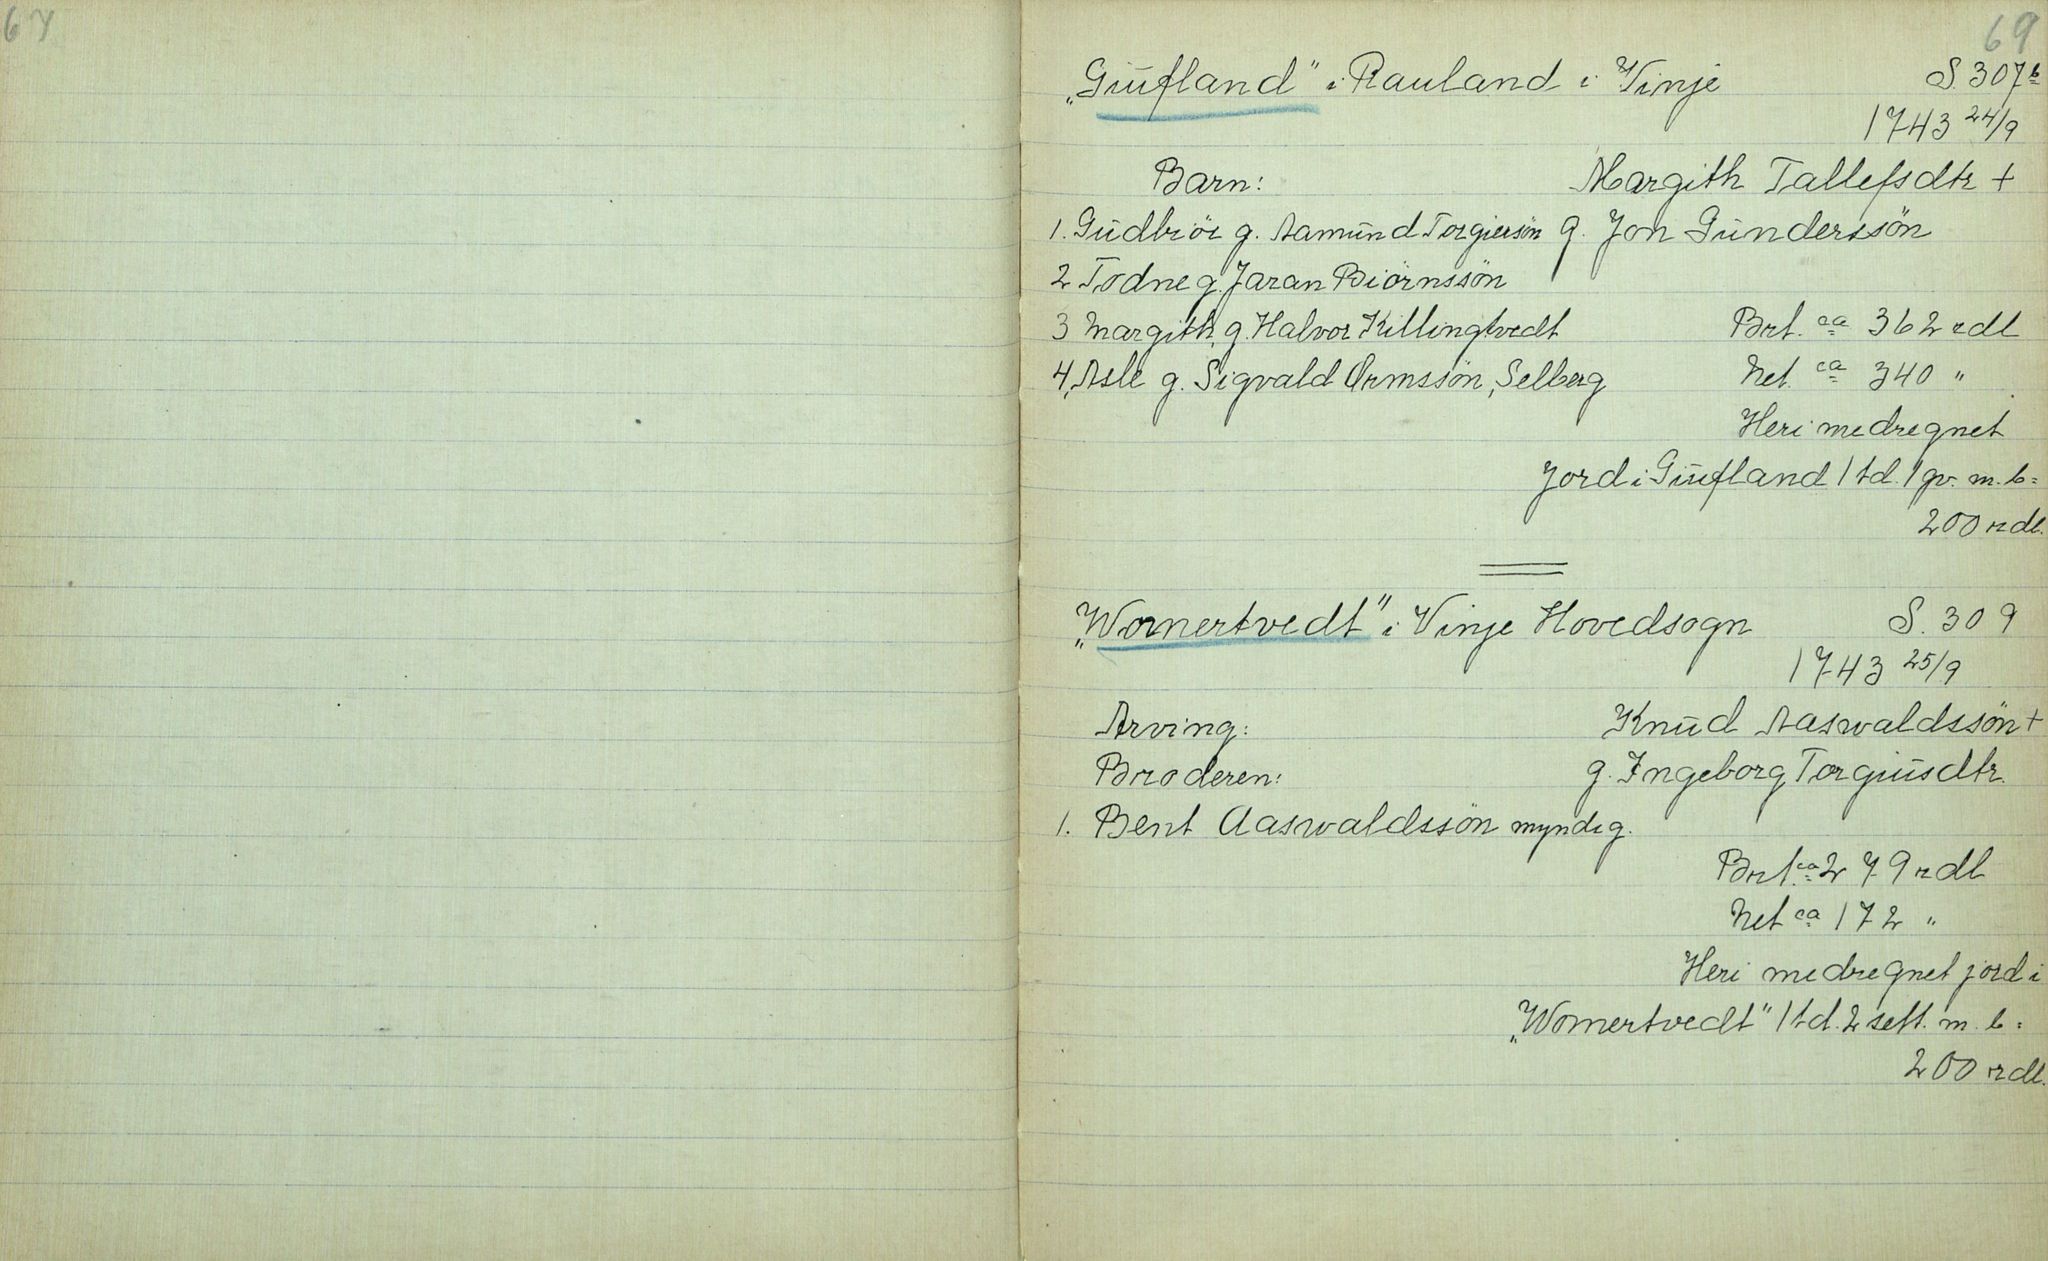 67
69
„Giufland" i Rauland i Vinje S. 307b
1743 24/9
Barn: Margith Tallefsdtr +
1. Gudbiör g. Aamund Torgiersön g. Jon Gunderssön
2 Todne g. Jaran Biörnssön
3 Margith, g. Halvor Killingtvedt Brt. ca 362 rdl
4, Asle g. Sigvald Ormssön, Selberg Net. ca 340 "
Heri medregnet
Jord i Giufland 1 td. 1 qv. m. b=
200 rdl.
„Womertvedt" i Vinje Hovedsogn S. 309
1743 25/9
Arving: Knud Aaswaldssön +
Broderen: g. Ingeborg Torgiusdtr.
1. Bent Aaswaldssön myndig.
Brt. ca 279 rdl
Net ca 172 "
Heri medregnet jord i
„Womertvedt" 1 td. 2 sett. m. b=
200 rdl.